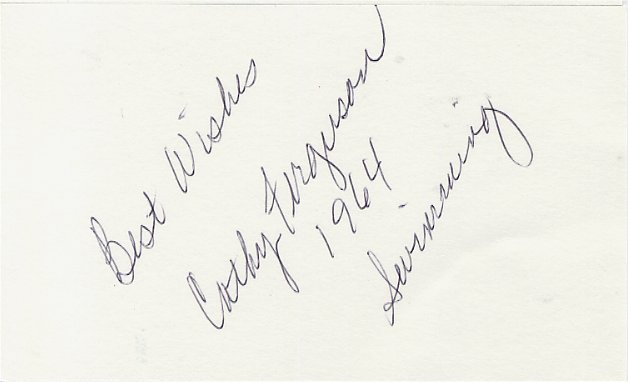 Best Wishes
Cathy Ferguson
1964
Swimming